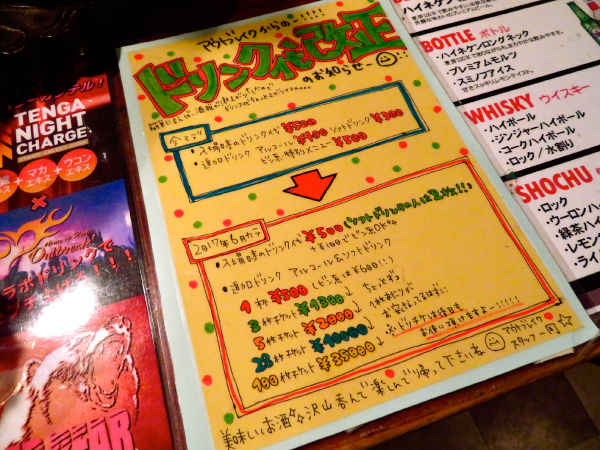 アウトブレイクからの!!!!
ドリンク代改正
のお知らせー
今マデ
・入場時のドリンク代 ¥500
・追加ドリンク アルコール ¥400 ソフトドリンク ¥300
ビン系・特別メニュー ¥500
2017年6月カラ
・入場時のドリンク代 ¥500
+¥100でビン系OK
・追加ドリンク アルコール&ソフトドリンク
1杯 ¥500 (ビン系は¥600(!))
3枚チケット ¥1300
5枚チケット ¥2000
28枚チケット ¥10000
100枚チケット ¥35000
ドリチケは後日も
お使い頂けますよー!!!!!
アウトブレイク
スタッフ一同☆
美味しいお酒を沢山呑んで楽しんで帰って下さいね
TENGA
NIGHT
CHARGE
+マカ+ウコン
エキス エキス
×
House of Rock
Outbreak!
ラボドリンクで
BOTTLE ボトル
・ハイネケンロングネック
・プレミアムモルツ
・スミノフアイス
WHISKY ウイスキー
・ハイボール
・ジンジャーハイボール
・コークハイボール
・ロック/水割り
SHOCHU
・ロック
・ウーロンハイ
・緑茶ハイ